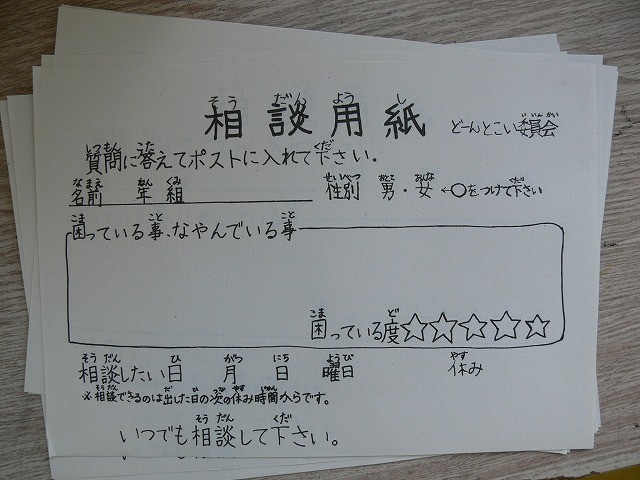 相談用紙 どーんとこい委員会
質問に答えてポストに入れて下さい.
名前 年 組 性別 男・女 ←○をつけて下さい
困っている事、なやんでいる事
困っている度☆☆☆☆☆
相談したい日 月 日 曜日 休み
※相談できるのは出した日の次の休み時間からです。
いつでも相談して下さい。